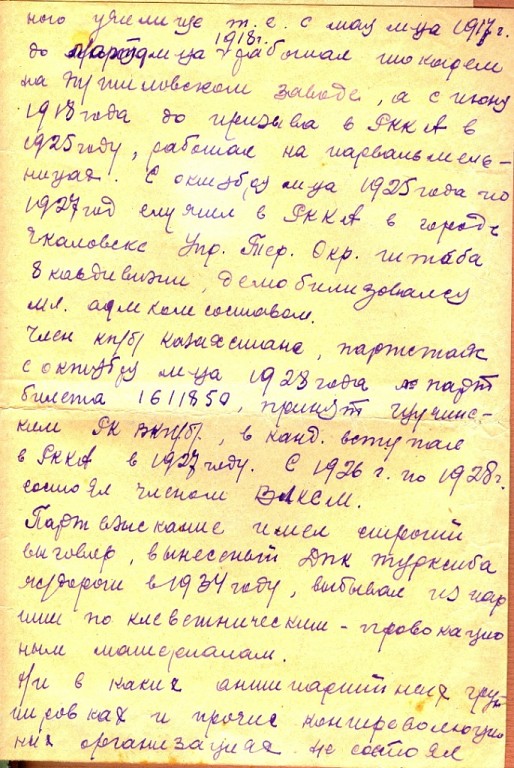 ного училище т.е. с мая м-ца 1917 г.
до марта м-ца 1918г. работал токарем
на Путиловском заводе, а с июня
1918 года до призыва в РККА в
1925 году, работал на паровых мель-
ницах. С октября м-ца 1925 года по
1927 год служил в РККА в городе
Чкаловске Упр. Тер. Окр. штаба
8 кавдивизии, демобилизовался
мл. адмкомсоставом.
Член кп/б/ Казахстана, партстаж
с октября м-ца 1928 года № парт
билета 1611850, принят Щучинс-
ким РК ВКП/б/, в канд. вступал
в РККА в 1927 году. С 1926 г. по 1928 г.
состоял членом ВЛКСМ.
Партвзыскание имел строгий
выговор, вынесеный ДПК Турксиба
ж/дороги в 1934 году, выбывал из пар
тии по клеветническим - провокацион
ным материалам.
Ни в каких антипартийных груп-
пировках и прочих контрреволюцион
ных организациях не состоял